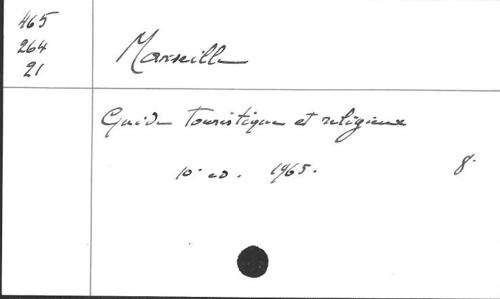 465
264
21
Marseille
Guide touristique et religieux
10e ed. 1965.
8°